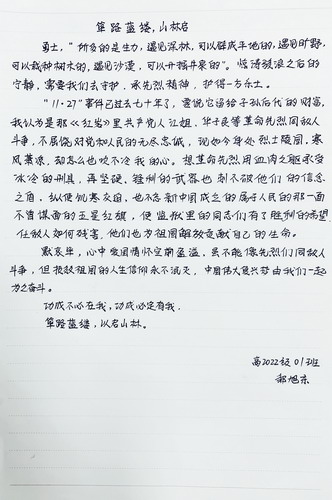 筚路蓝缕,山林启
勇士,"所多的是生力,遇见深林,可以辟成平地的,遇见旷野,
可以栽种树木的,遇见沙漠,可以开掘井泉的"。惊涛骇浪之后的
宁静,需要我们去守护,承先烈精神,护得一方乐土。
"11·27"事件已过去七十年了,要说它留给子孙后代的财富,
我认为是那《红岩》里共产党人江姐、华子良等革命先烈同敌人
斗争,不屈饶对党和人民的无尽忠诚,现如今身处烈士陵园,寒
风萧凉,却怎么也吹不冷我的心。想革命先烈用血肉之躯承受
冰冷的刑具,再坚硬、锋利的武器也刺不破他们的信念
之盾,纵使饥寒交困,也不忘新中国成立的属于人民的那一面
不曾谋面的五星红旗,使监狱里的同志们有了胜利的希望
任敌人如何残害,他们也为祖国解放贡献自己的生命。
默哀毕,心中爱国情怀空前盈溢,虽不能像先烈们同敌人
斗争,但投放祖国的人生信仰永不泯灭,中国伟大复兴梦由我们一起
为之奋斗。
功成不必在我,功成必定有我。
筚路蓝缕,以启山林。
高2022级01班
旭东